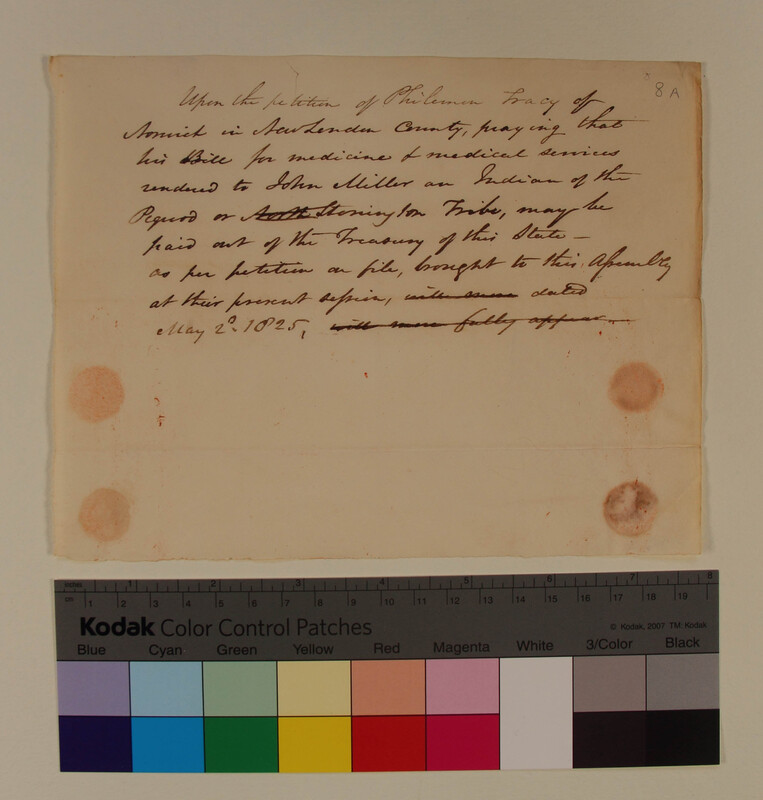 8 A
Upon the petition of Philemon Tracy of
Norwich in New London County, praying that
his Bill for medicine & medical services
rendered to John Miller an Indian of the
Pequod or North Stonington Tribe, may be
paid out of the Treasury of this State —
as per petition on file, brought to this Assembly
at their present session, will more dated
May 2d. 1825, will more fully appear —
inches 1 2 3 4 5 6 7 8
cm 1 2 3 4 5 6 7 8 9 10 11 12 13 14 15 16 17 18 19
Kodak Color Control Patches © Kodak, 2007 TM: Kodak
Blue Cyan Green Yellow Red Magenta White 3/Color Black